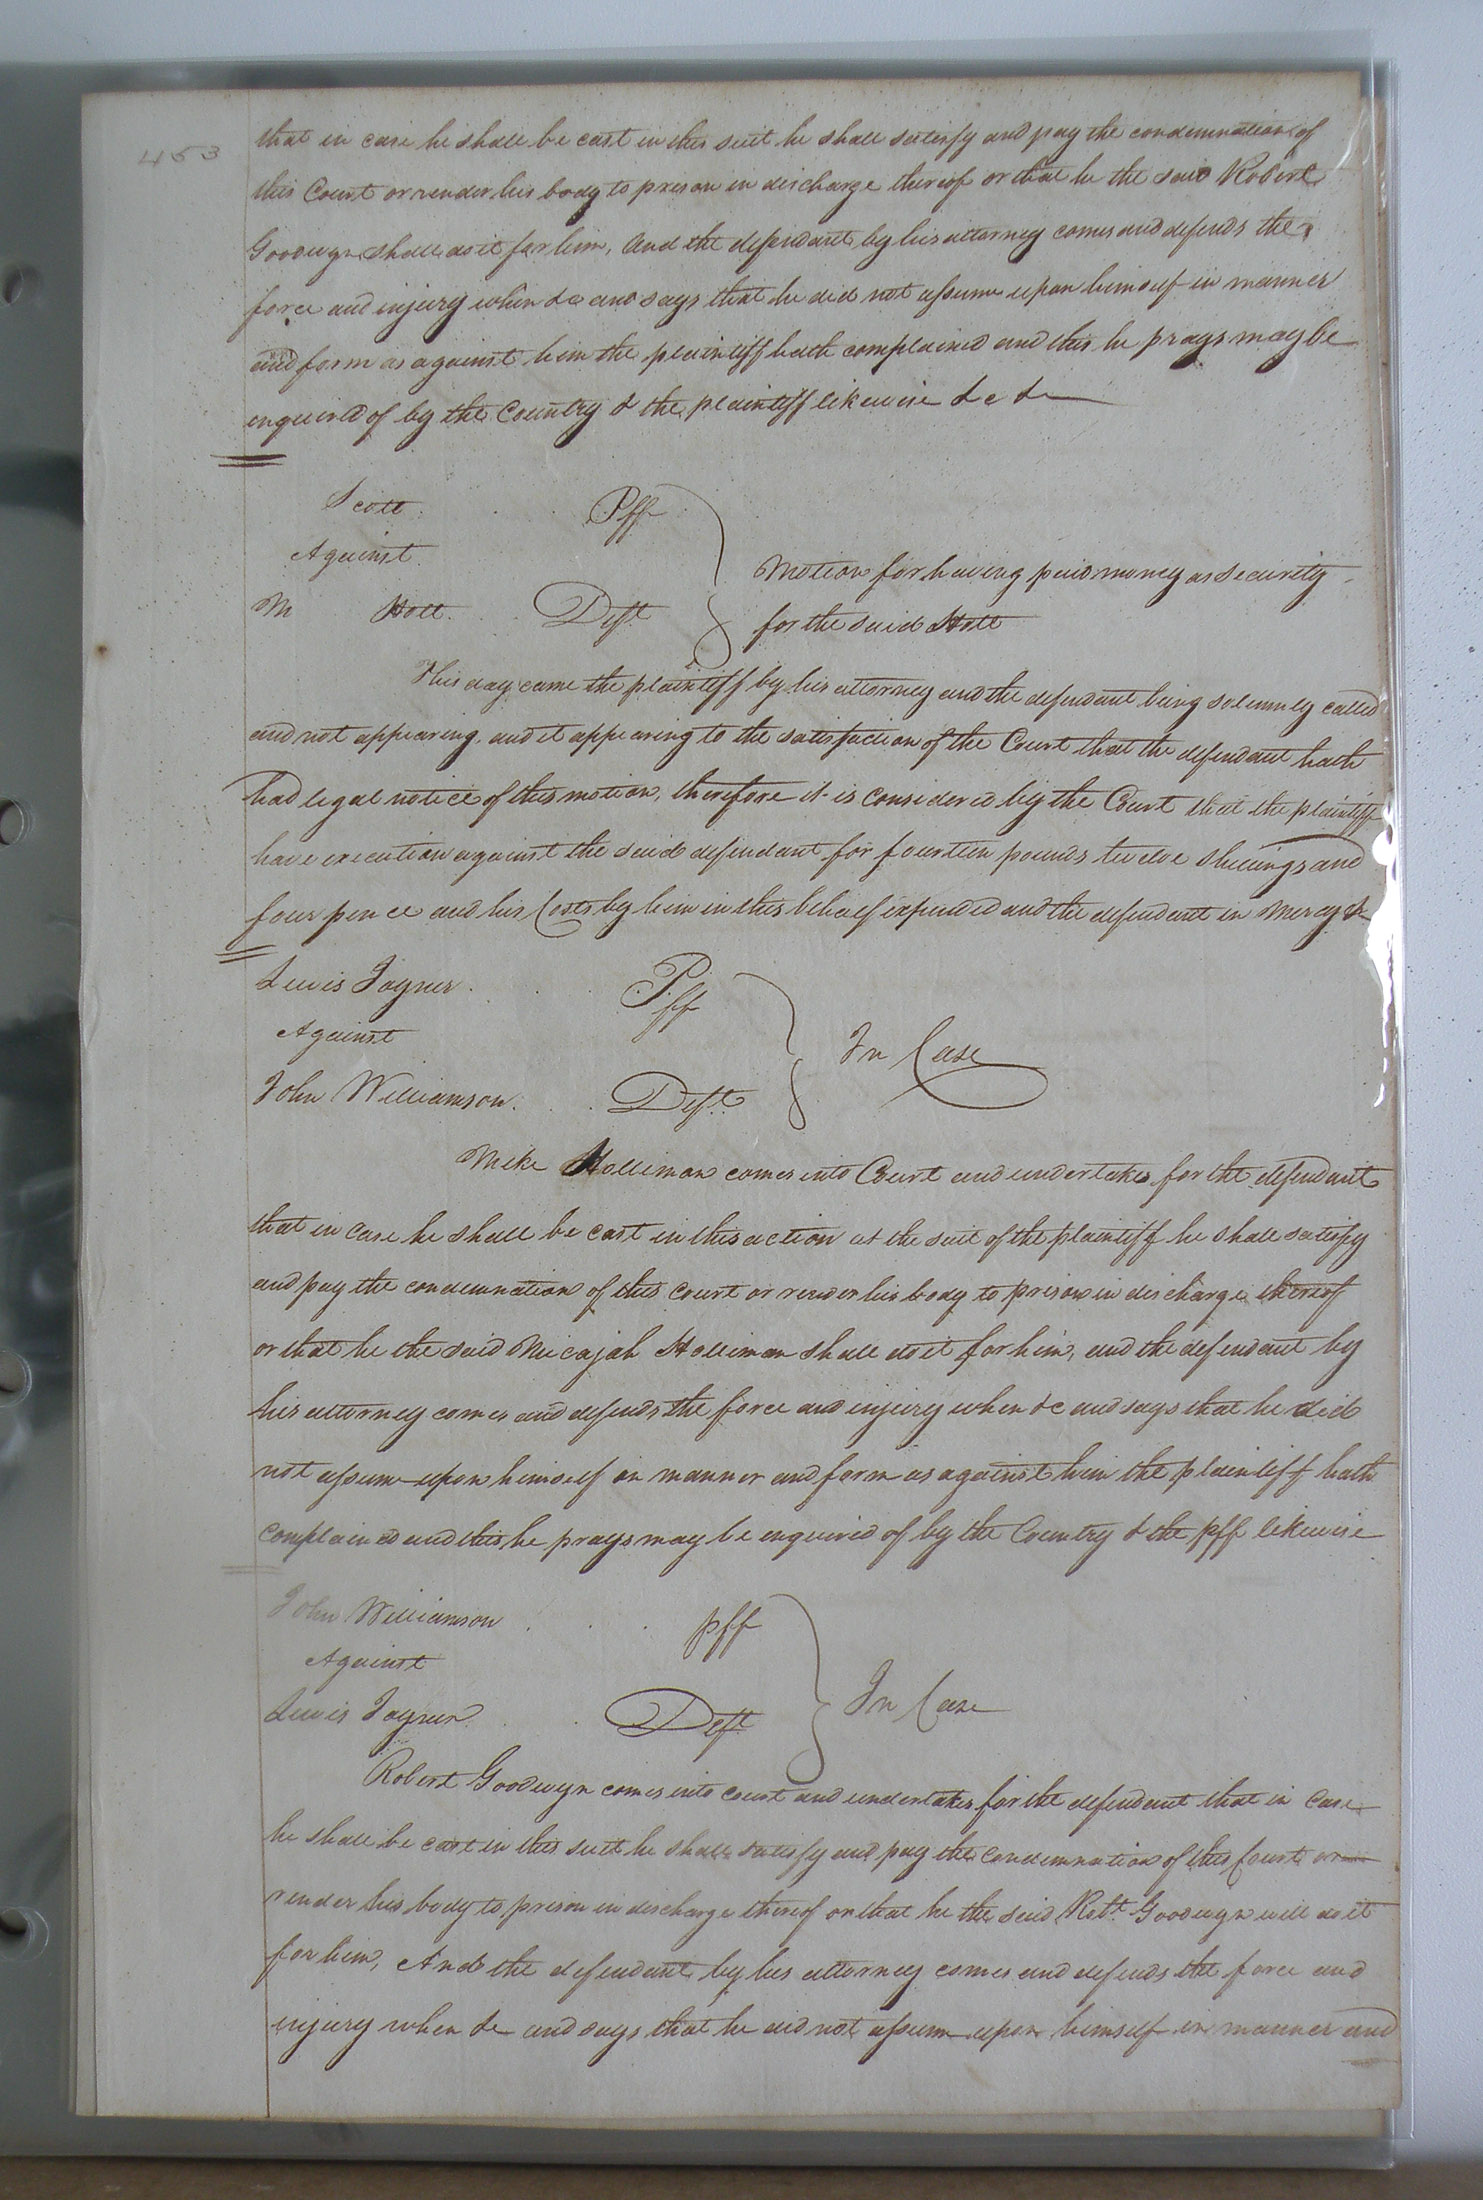 453
that in case he shall be cast in this suit he shall satisfy and pay the condemnation of
this Court or render his body to prison in discharge thereof or that he the said Robert
Goodwyn shall do it for him, And the defendant by his attorney comes and defends the
force and injury when &c and says that he did not assume upon himself in manner
and form as against him the plaintiff hath complained and this he prays may be
enquired of by the Country & the plaintiff likewise &c &c
Scott Pff
Against
M Holt Deft
Motion for having paid money as Security
for the said Holt
This day came the plaintiff by his attorney and the defendant being solemnly called
and not appearing, and it appearing to the satisfaction of the Court that the defendant hath
had legal notice of this motion, therefore it is considered by the Court that the plaintiff
have execution against the said defendant for fourteen pounds twelve shillings and
four pence and his Costs by him in this behalf expended and the defendant in Mercy &c
Lewis Joyner Pff
Against
John Williamson Deft
In Case
Mike Holliman comes into Court and undertakes for the defendant
that in case he shall be cast in this action at the suit of the plaintiff he shall satisfy
and pay the condemnation of this Court or render his body to prison in discharge thereof
or that he the said Micajah Holliman shall do it for him, and the defendant by
his attorney comes and defends the force and injury when &c and says that he did
not assume upon himself in manner and form as against him the plaintiff hath
complained and this he prays may be enquired of by the Country & the pff likewise
John Williamson pff
Against
Lewis Joyner Deft
In Case
Robert Goodwyn comes into court and undertakes for the defendant that in case
he shall be cast in this suit he shall satisfy and pay the condemnation of this Court or
render his body to prison in discharge thereof or that he the said Robt. Goodwyn will do it
for him, And the defendant by his attorney comes and defends the force and
injury when &c and says that he did not assume upon himself in manner and